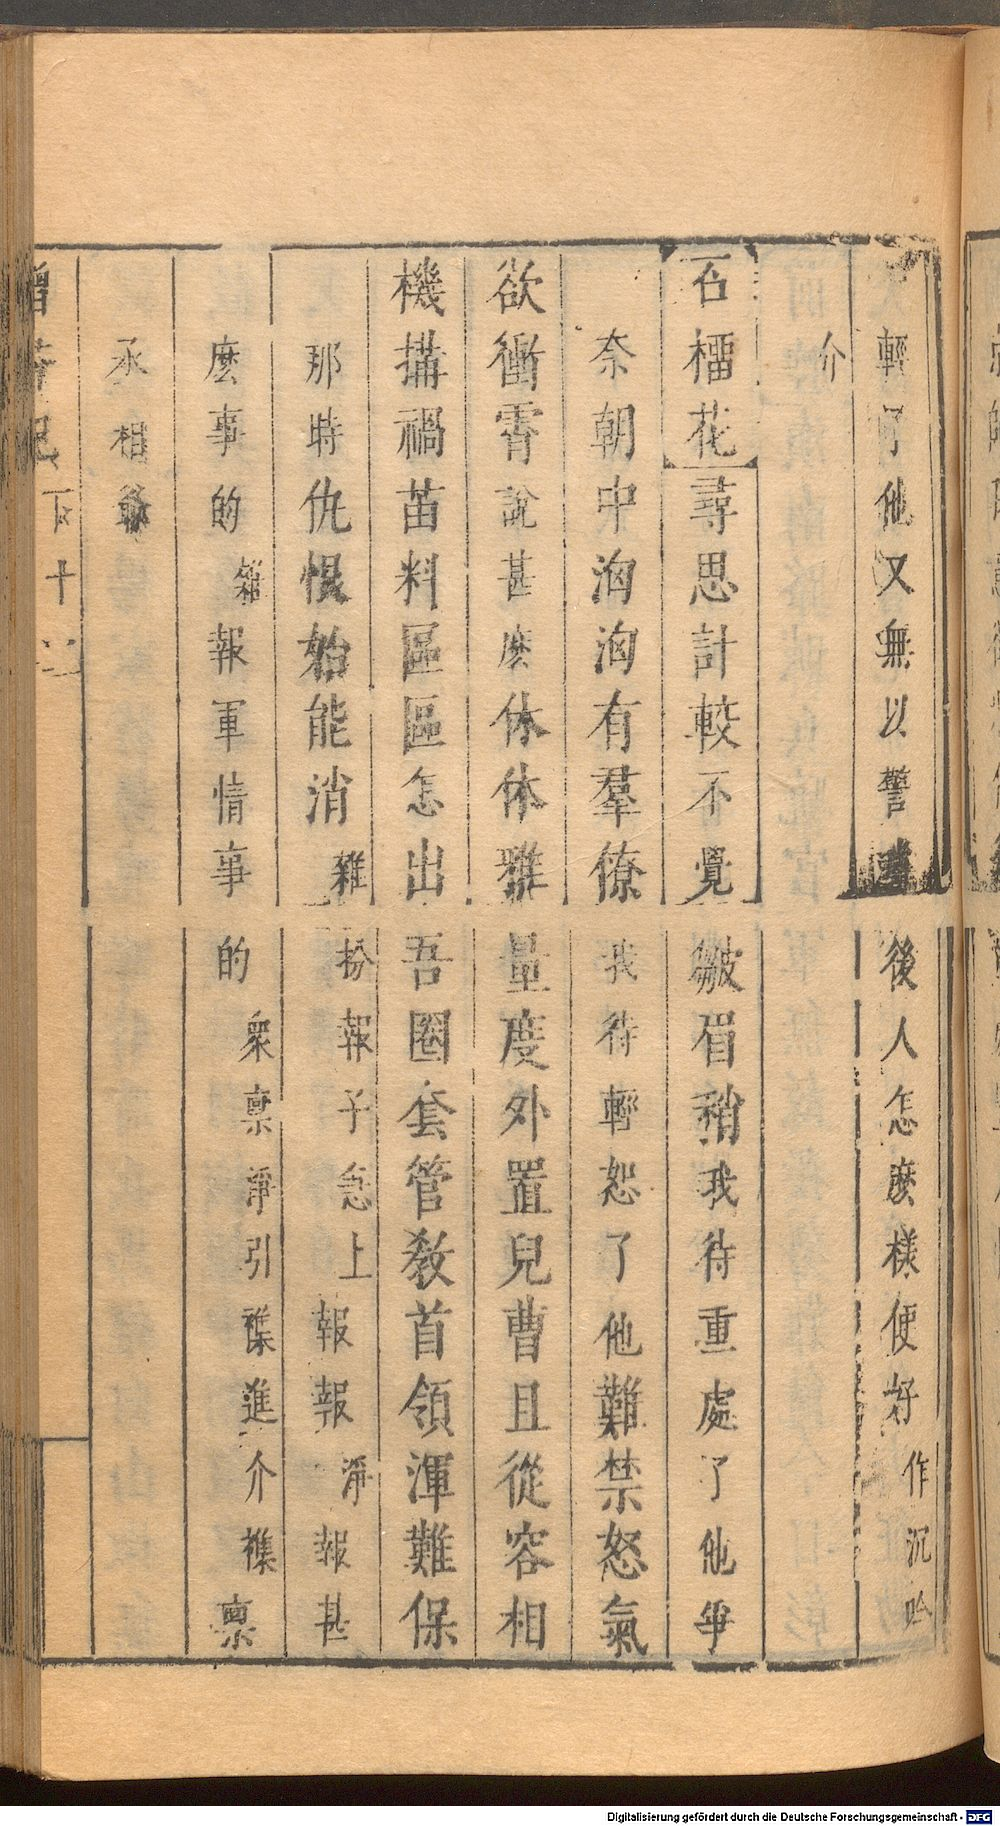 輕了他又無以警後人怎麽樣便好作沉吟
介
石榴花尋思計較不覺皺眉稍我待重處了他爭
奈朝中洶洶有羣僚我待輕恕了他難禁怒氣
欲衝霄說甚麽休休雅量度外置兒曹且從容相
機搆禍苗料區區怎出吾圈套管教首領渾難保
那時仇恨始能消雜扮報子急上報報淨報甚
麽事的雜報軍情事的衆禀淨引襍進介襍禀
丞相爺
下十
Digitalisierung gefördert durch die Deutsche Forschungsgemeinschaft - DFG